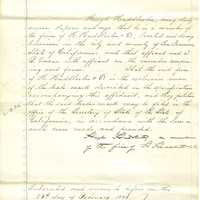 Hugh Huddleston, being duly
sworn deposes and says that he is a member of
the firm of H. Huddleston & Co. located and doing
business in the city and county of San Francisco
State of California; that affiant and
are the members
said firm. That the said firm
of H. Huddleston & Co. is the exclusive owner
of the trade mark described in the specification
accompanying this affidavit; and the petition
that the said trademark may be filed in the
office of the Secretary of State of the State of
California, in accordance with the law in
such case made and provided.
Hugh a member
of the firm
Subscribed and sworn to before me this
28th day of February